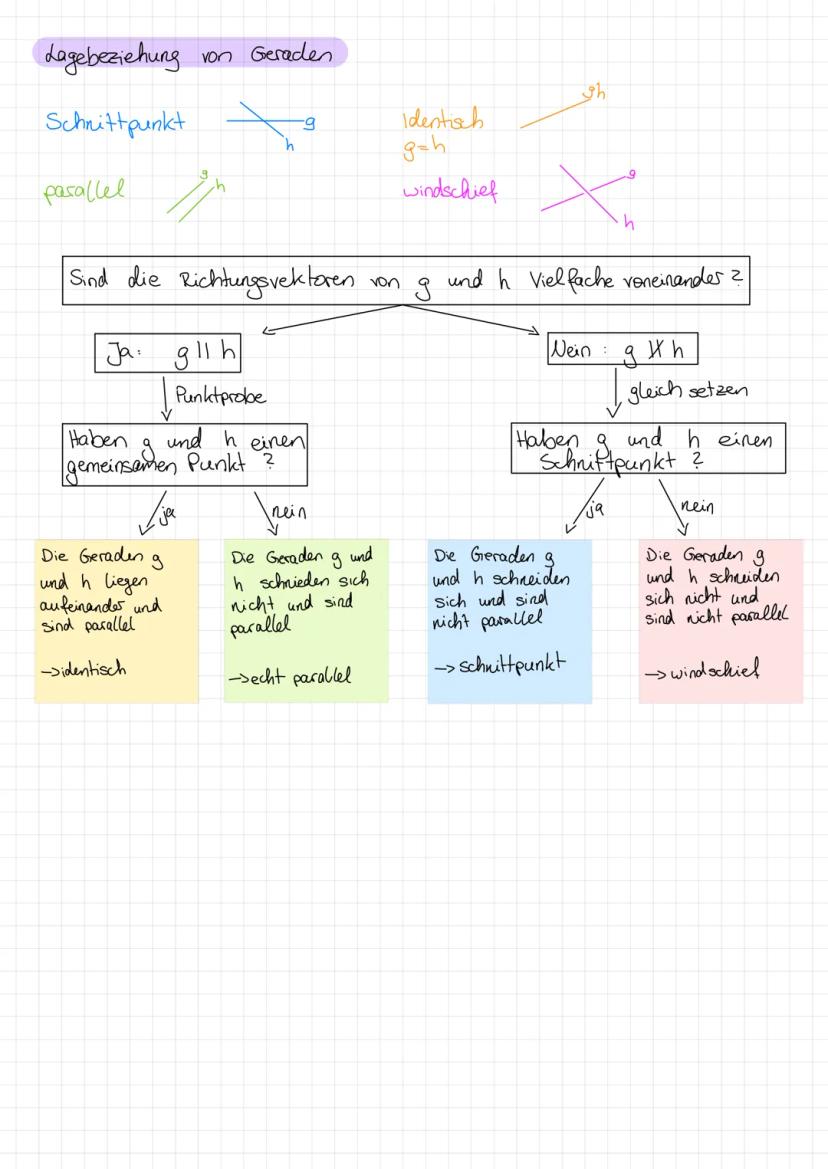 Lagebeziehung von Geraden
Schnittpunkt
g
h
Identisch
g=h
g h
parallel
g
h
windschief
g
h
Sind die Richtungsvektoren von g und h Vielfache voneinander?
Ja: g || h
Nein: g ∦ h
Punktprobe
gleich setzen
Haben g und h einen
gemeinsamen Punkt ?
Haben g und h einen
Schnittpunkt ?
ja
nein
ja
nein
Die Geraden g
und h liegen
aufeinander und
sind parallel
→identisch
Die Geraden g und
h schnieden sich
nicht und sind
parallel
→echt parallel
Die Geraden g
und h schneiden
sich und sind
nicht parallel
→schnittpunkt
Die Geraden g
und h schneiden
sich nicht und
sind nicht parallel
→windschief